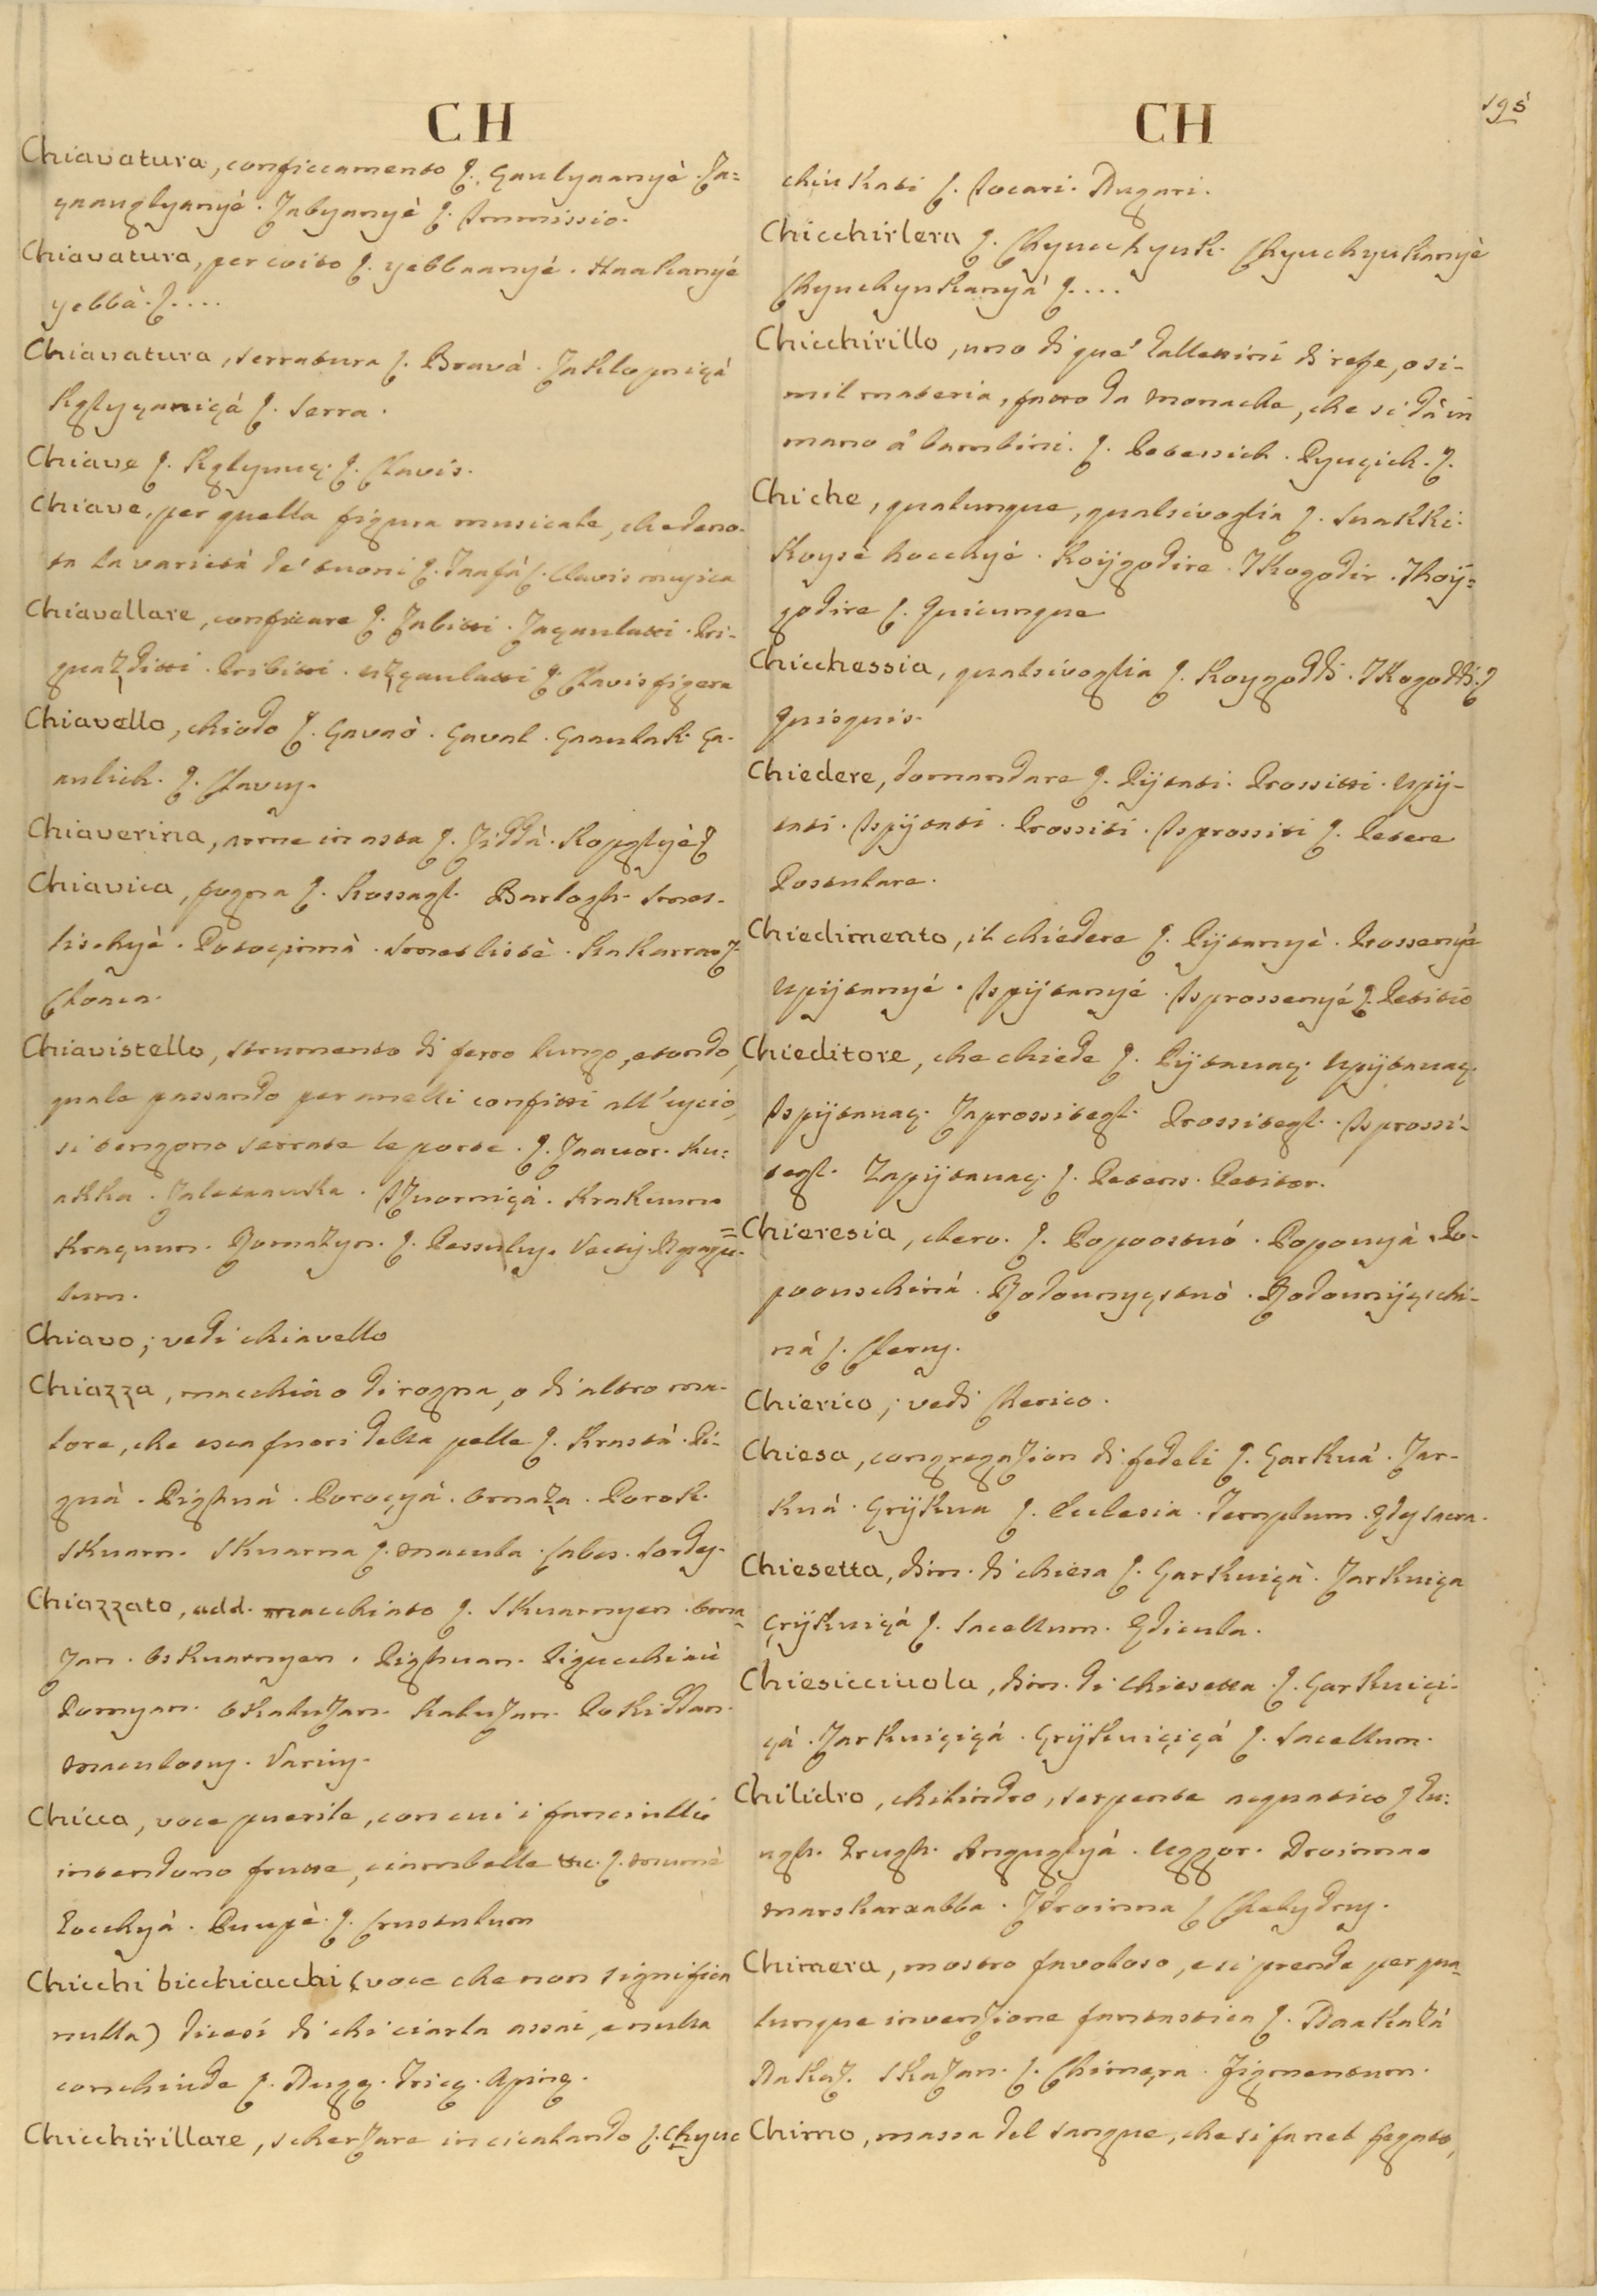 195
CH
Chiavatura, conficcamento ʃ. Çaulyaanyè. Za=
çaauglyanyè. Zabyanyè ʃ. Immissio.
Chiavatura, per coito ʃ. yebbaanyè. Haakanyè
yebbà. ʃ....
Chiavatura, serratura ʃ. Bravà. Zaklopniçà
Kglyyçaniçà ʃ. Serra.
Chiave ʃ. Kglyuuç. ʃ. Clavis.
Chiave, per quella figura musicale, che deno-
ta la varietà de' suoni ʃ. Zaafà ʃ. Clavis musica
Chiavellare, conficcare ʃ. Zabitti. Zaçaulatti. Pri-
guazditti. Pribitti. uzçaulatti ʃ. Clavis figere
Chiavello, chiodo ʃ. Çavaò. Çaval. Çaaulak. Ça-
aulich. ʃ. Clavus.
Chiaverina, arme in asta ʃ. Ziddà. Kopglyè ʃ.
Chiavica, fogna ʃ. Kossagl. Barlogh. Smet-
lischyè. Potoçinnà. Smetlistè. Kakarrao ʃ.
Cloaca.
Chiavistello, strumento di ferro lungo, e tondo,
quale passando per anelli confitti all'uscio,
si tengono serrate le porte. ʃ. Zaavor. Ku=
akka. Zaletaavka. Izvorniçà. Krakuun.
Kraçuun. Domazyn. ʃ. Pessulus. Vectis. Repagu=
lum.
Chiavo; vedi chiavello
Chiazza, macchia o di rogna, o di altro ma-
lore, che esca fuori della pelle ʃ. Krastà. Pi-
guà. Pighuà. Poroçyà. Omaza. Porok.
Skuarn. Skuarna ʃ. Macula. Labes. Sordes.
Chiazzato, add. macchiato ʃ. Skuarnyen. Oma-
zan. Oskuarnyen. Pighuan. Pigucchiaù
Pomyan. Okaluzan. Kaluzan. Pokiddan.
Maculosus. Varius.
Chicca, voce puerile, con cui i fanciulli
intendono frutte, ciambelle etc. ʃ. mumè
Zocchyà. Puupè. ʃ. Crustulum
Chicchi bicchiacchi (voce che non significa
nulla) dicesi di chi ciarla assai, e nulla
conchiude ʃ. Nugæ. Tricæ. Apinæ.
Chicchirillare, scherzare in cicalando ʃ. Chyuc
CH
chiukati ʃ. Iocari. Nugari.
Chicchirlera ʃ. Chyucchyuk. Chyuchyukanyè
Chyuchyukanyà ʃ....
Chicchirillo, uno di que' dallenini di refe, o si-
mil materia, fatto da monache, che si dà in
mano a' bambini. ʃ. Petessich. Pyuçich. ʃ.
Chiche, qualunque, qualsivoglia ʃ. Suakki.
Koysè hocchyè. Koÿgodire. Tkogodir. Tkoÿ=
godire ʃ. Quicunque
Chicchessia, qualsivoglia ʃ. Koygoddi. Tkogoddi. ʃ
Quisquis.
Chiedere, domandare ʃ. Pÿtati. Prossitti. Upÿ-
tati. Ispÿtati. Prossiti. Isprossiti ʃ. Petere
Postulare.
Chiedimento, il chiedere ʃ. Pÿtanyè. Prossenyè
Upÿtanyè. Ispÿtanyè. Isprossenyè ʃ. Petitio
Chieditore, che chiede ʃ. Pÿtauaç. Upÿtauaç.
Ispÿtauaç. Zaprossitegl. Prossitegl. Isprossi-
tegl. Zapÿtauaç. ʃ. Petens. Petitor.
Chieresia, clero. ʃ. Popoostuó. Popouyà. Po-
poouschinà. Rodounyçstuò. Rodounÿçschi-
nà ʃ. Clerus.
Chierico; vedi Cherico.
Chiesa, congregazion di fedeli ʃ. Çarkuà. Zar-
kuà. Çrÿkua ʃ. Ecclesia. Templum. Ædes sacra.
Chiesetta, dim. di chiesa ʃ. Çarkuiçà. Zarkuiça
Çrÿkuiçà ʃ. Sacellum. Ædicula.
Chiesicciuola, dim. di chiesetta ʃ. Çarkuiçi-
çà. Zarkuiçiçà. Çrÿkuiçiçà ʃ. Sacellum.
Chilidro, chilindro, serpente acquatico ʃ. Lu=
ugh. Trugh. Anguglyà. Uggor. Droinna
marskaraabba. Zdroinna ʃ. Chelydrus.
Chimera, mostro favoloso, e si prende per qua-
lunque invenzione fantastica ʃ. Naakazà
Nakaz. Skazan. ʃ. Chimæra. Figmentum.
Chimo, massa del sangue, che si fa nel fegato,